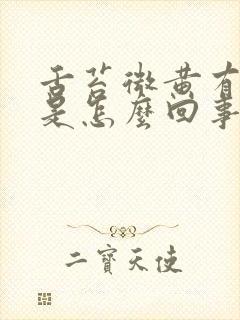 舌苔微黄有
是怎麼回事
二寶天使